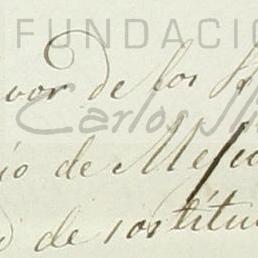 FUNDACIÓ
vor de los
Carlos Sli
io de Me
d de sostitu